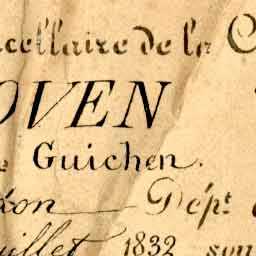 cellaire de la C
OVEN
e Guichen.
xon Dépt.
uillet 1832 sou